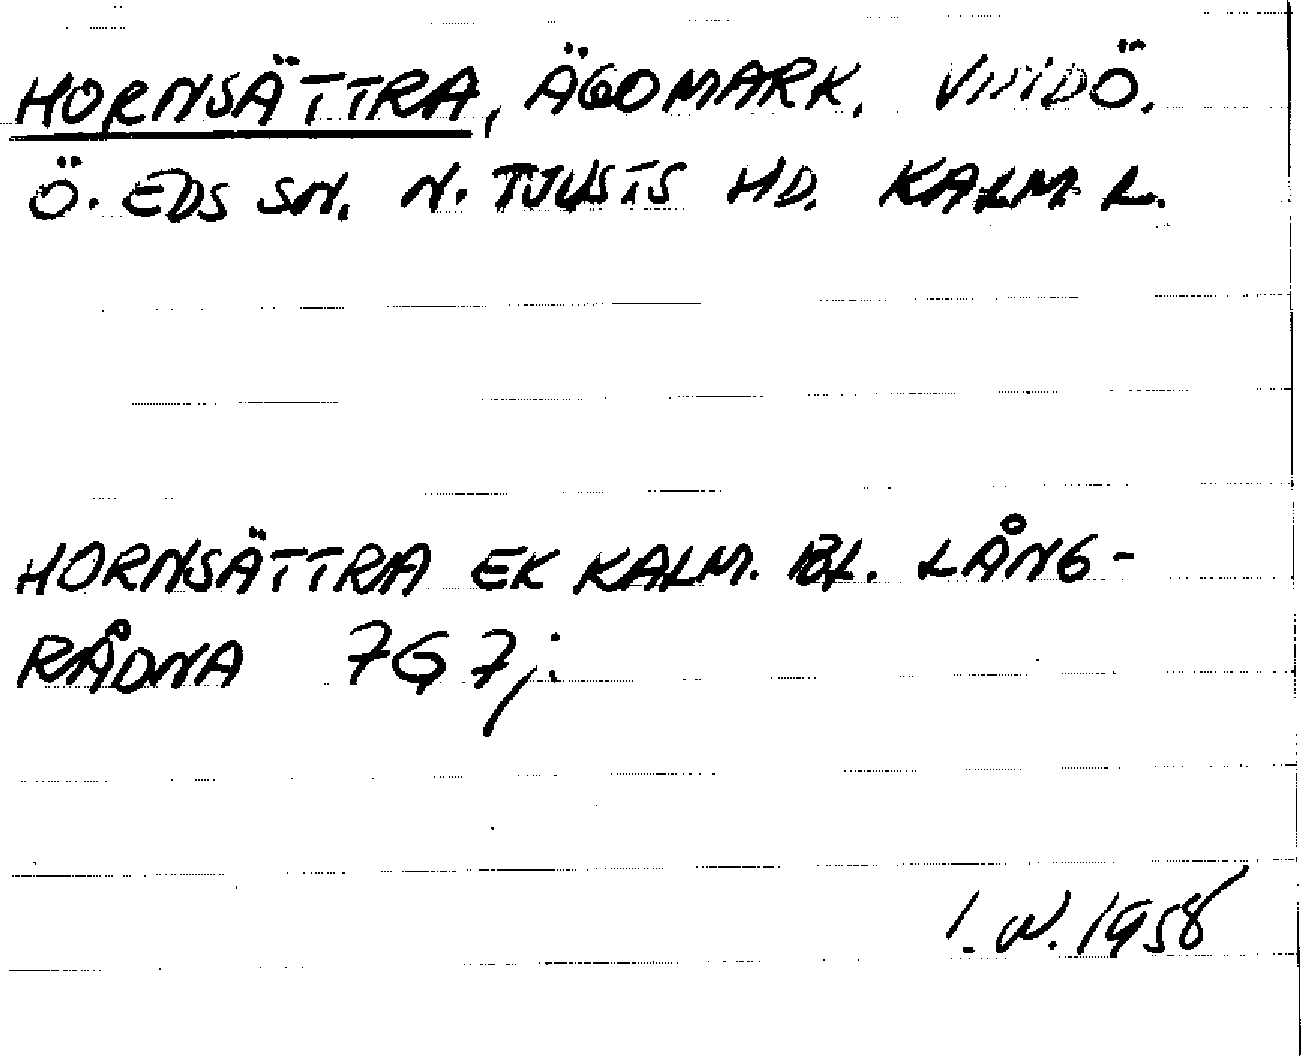 HORNSÄTTRA, ÄGOMARK. VINDÖ.
Ö. EDS SN. N. TJUSTS HD. KALM. L.
HORNSÄTTRA EK KALM. BL. LÅNG-
RÅDNA 7G7j:
I.W. 1958